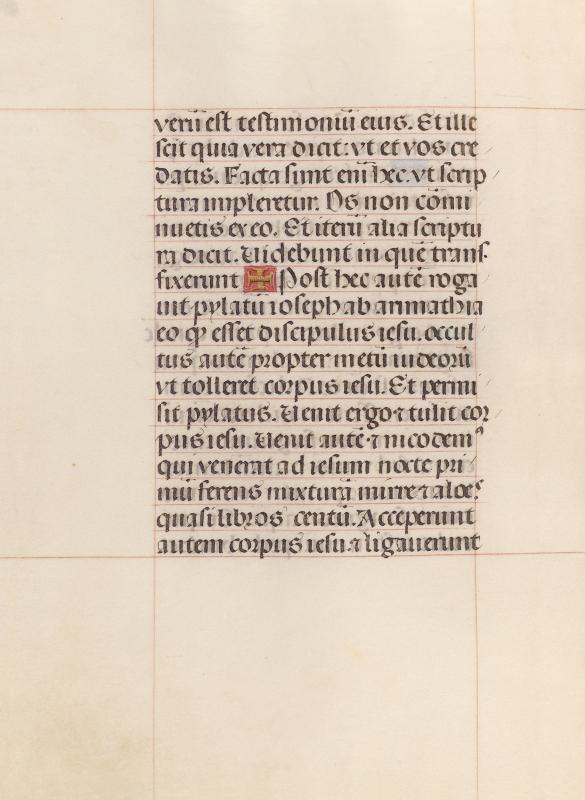 verū est testimoniū eius. Et ille
scit quia vera dicit: vt et vos cre
datis. Facta sunt eni hec. vt scrip
tura impleretur. Os non cōmi
nuetis ex eo. Et iterū alia scriptu
ra dicit. Videbunt in quē trans
fixerunt Post hec autē roga
uit pylatū ioseph ab arimathia
eo ꝙ esset discipulus iesu. occul
tus autē propter metū iudeorū
vt tolleret corpus iesu. Et permi
sit pylatus. Venit ergo ⁊ tulit cor
pus iesu. Venit autē ⁊ nicodemꝰ
qui venerat ad iesum nocte pri
mū ferens mixturā mirre ⁊ aloes
quasi libros centū. Acceperunt
autem corpus iesu. ⁊ ligauerunt